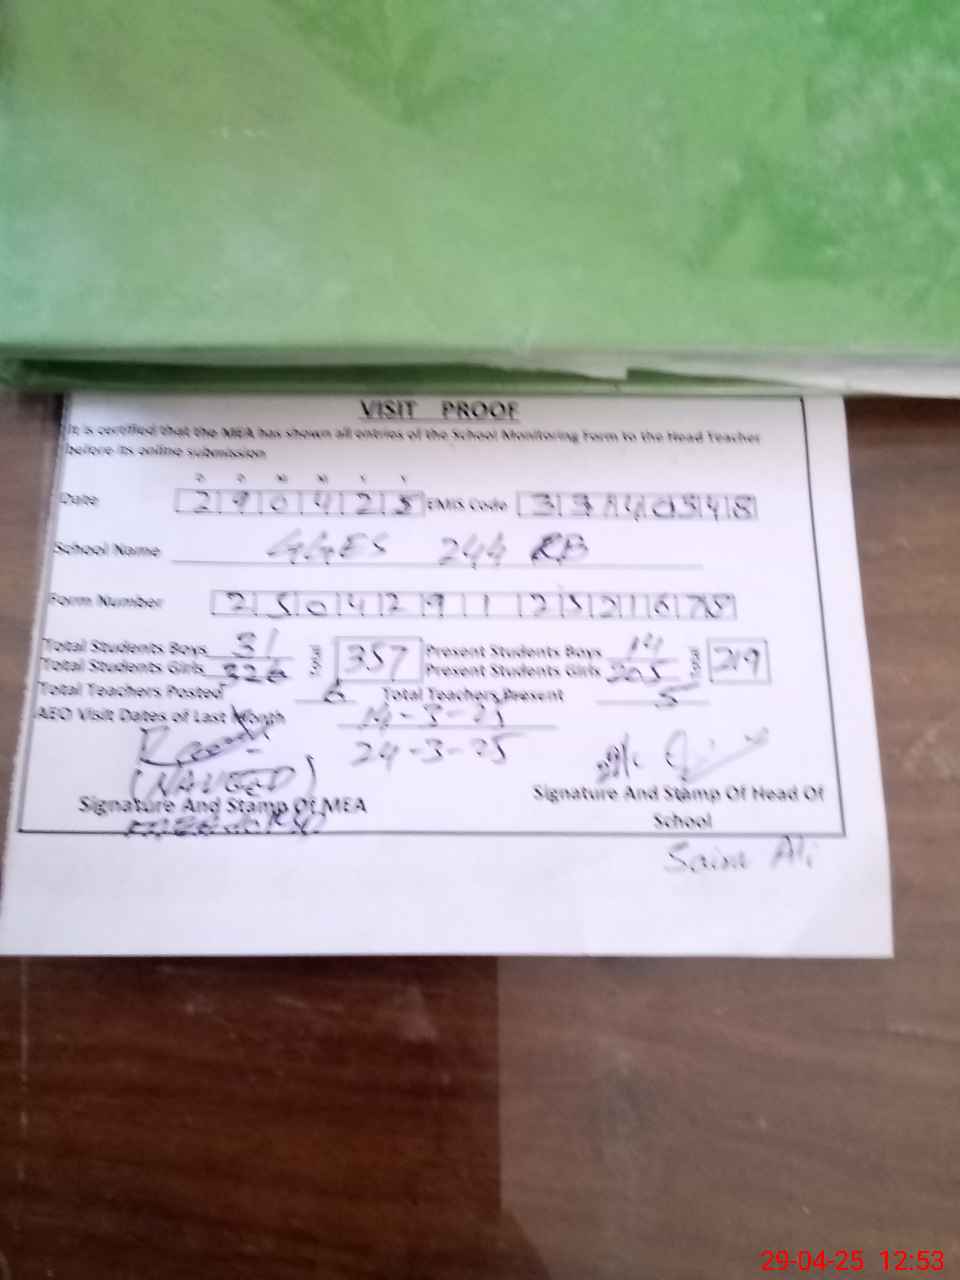 VISIT PROOF
It is certified that the MEA has shown all entries of the School Monitoring Form to the Head Teacher
before its online submission
D D M M Y Y
Date 290425 EMIS Code 33140548
School Name GGES 244 RB
Form Number 25042912521678
Total Students Boys 31 Present Students Boys 14
Total Students Girls 326 357 Present Students Girls 205 219
Total Teachers Posted 6 Total Teachers Present 5
AEO Visit Dates of Last Month 14-3-25
24-3-25
(NAVEED)
Signature And Stamp Of MEA
Signature And Stamp Of Head Of
School
Saima Ali
29-04-25 12:53